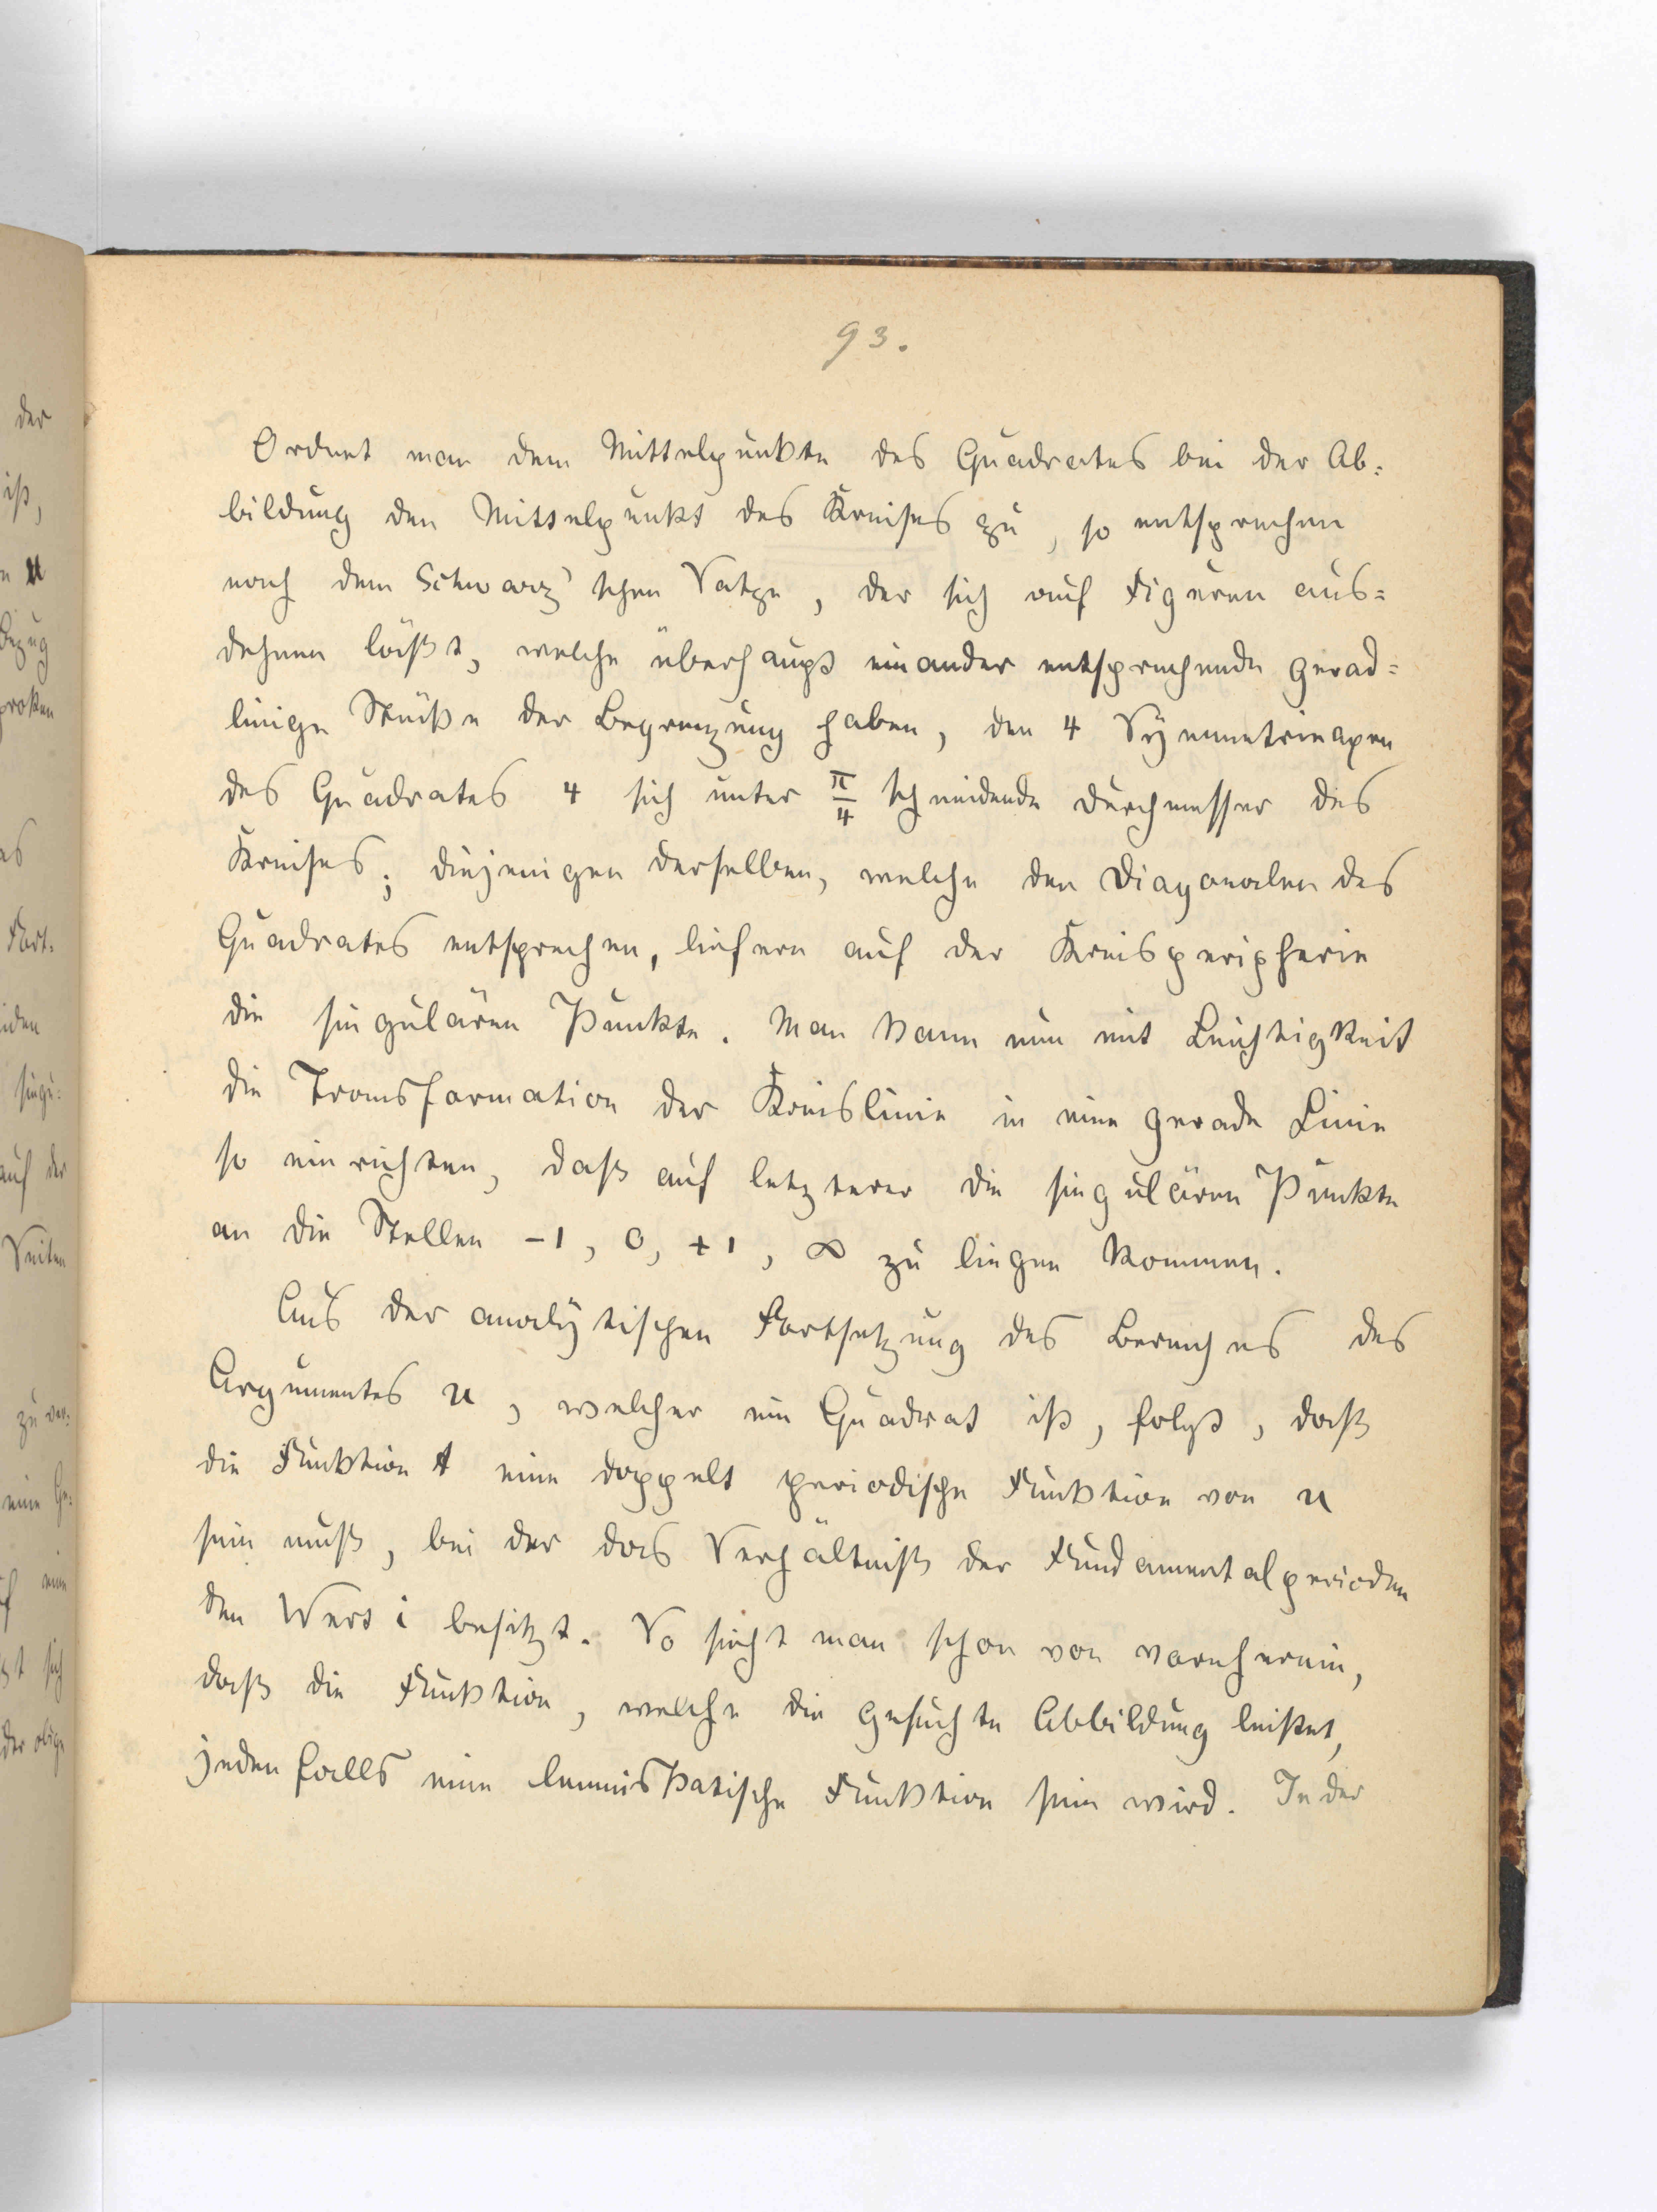 93.
Ordnet man dem Mittelpunkte des Quadrates bei der Ab=
bildung den Mittelpunkt des Kreises zu, so entsprechen
nach dem Schwarz'schen Satze, der sich auf Figuren aus=
dehnen läßt, welche überhaupt einander entsprechende gerad=
linige Stücke der Begrenzung haben, den 4 Symmetrieaxen
des Quadrates 4 sich unter π/4 schneidende Durchmesser des
Kreises; diejenigen derselben, welche den Diagonalen des
Quadrates entsprechen, liefern auf der Kreisperipherie
die singulären Punkte. Man kann nun mit Leichtigkeit
die Transformation der Kreislinie in eine gerade Linie
so einrichten, daß auf letzterer die singulären Punkte
an die Stellen -1, 0, +1, ∞ zu liegen kommen.
Aus der analytischen Fortsetzung des Bereiches des
Argumentes u, welcher ein Quadrat ist, folgt, daß
die Funktion t eine doppelt periodische Funktion von u
sein muß, bei der das Verhältniß der Fundamentalperioden
den Wert i besitzt. So sieht man schon von vornherein,
daß die Funktion, welche die gesuchte Abbildung leistet,
jedenfalls eine lemniskatische Funktion sein wird. In der